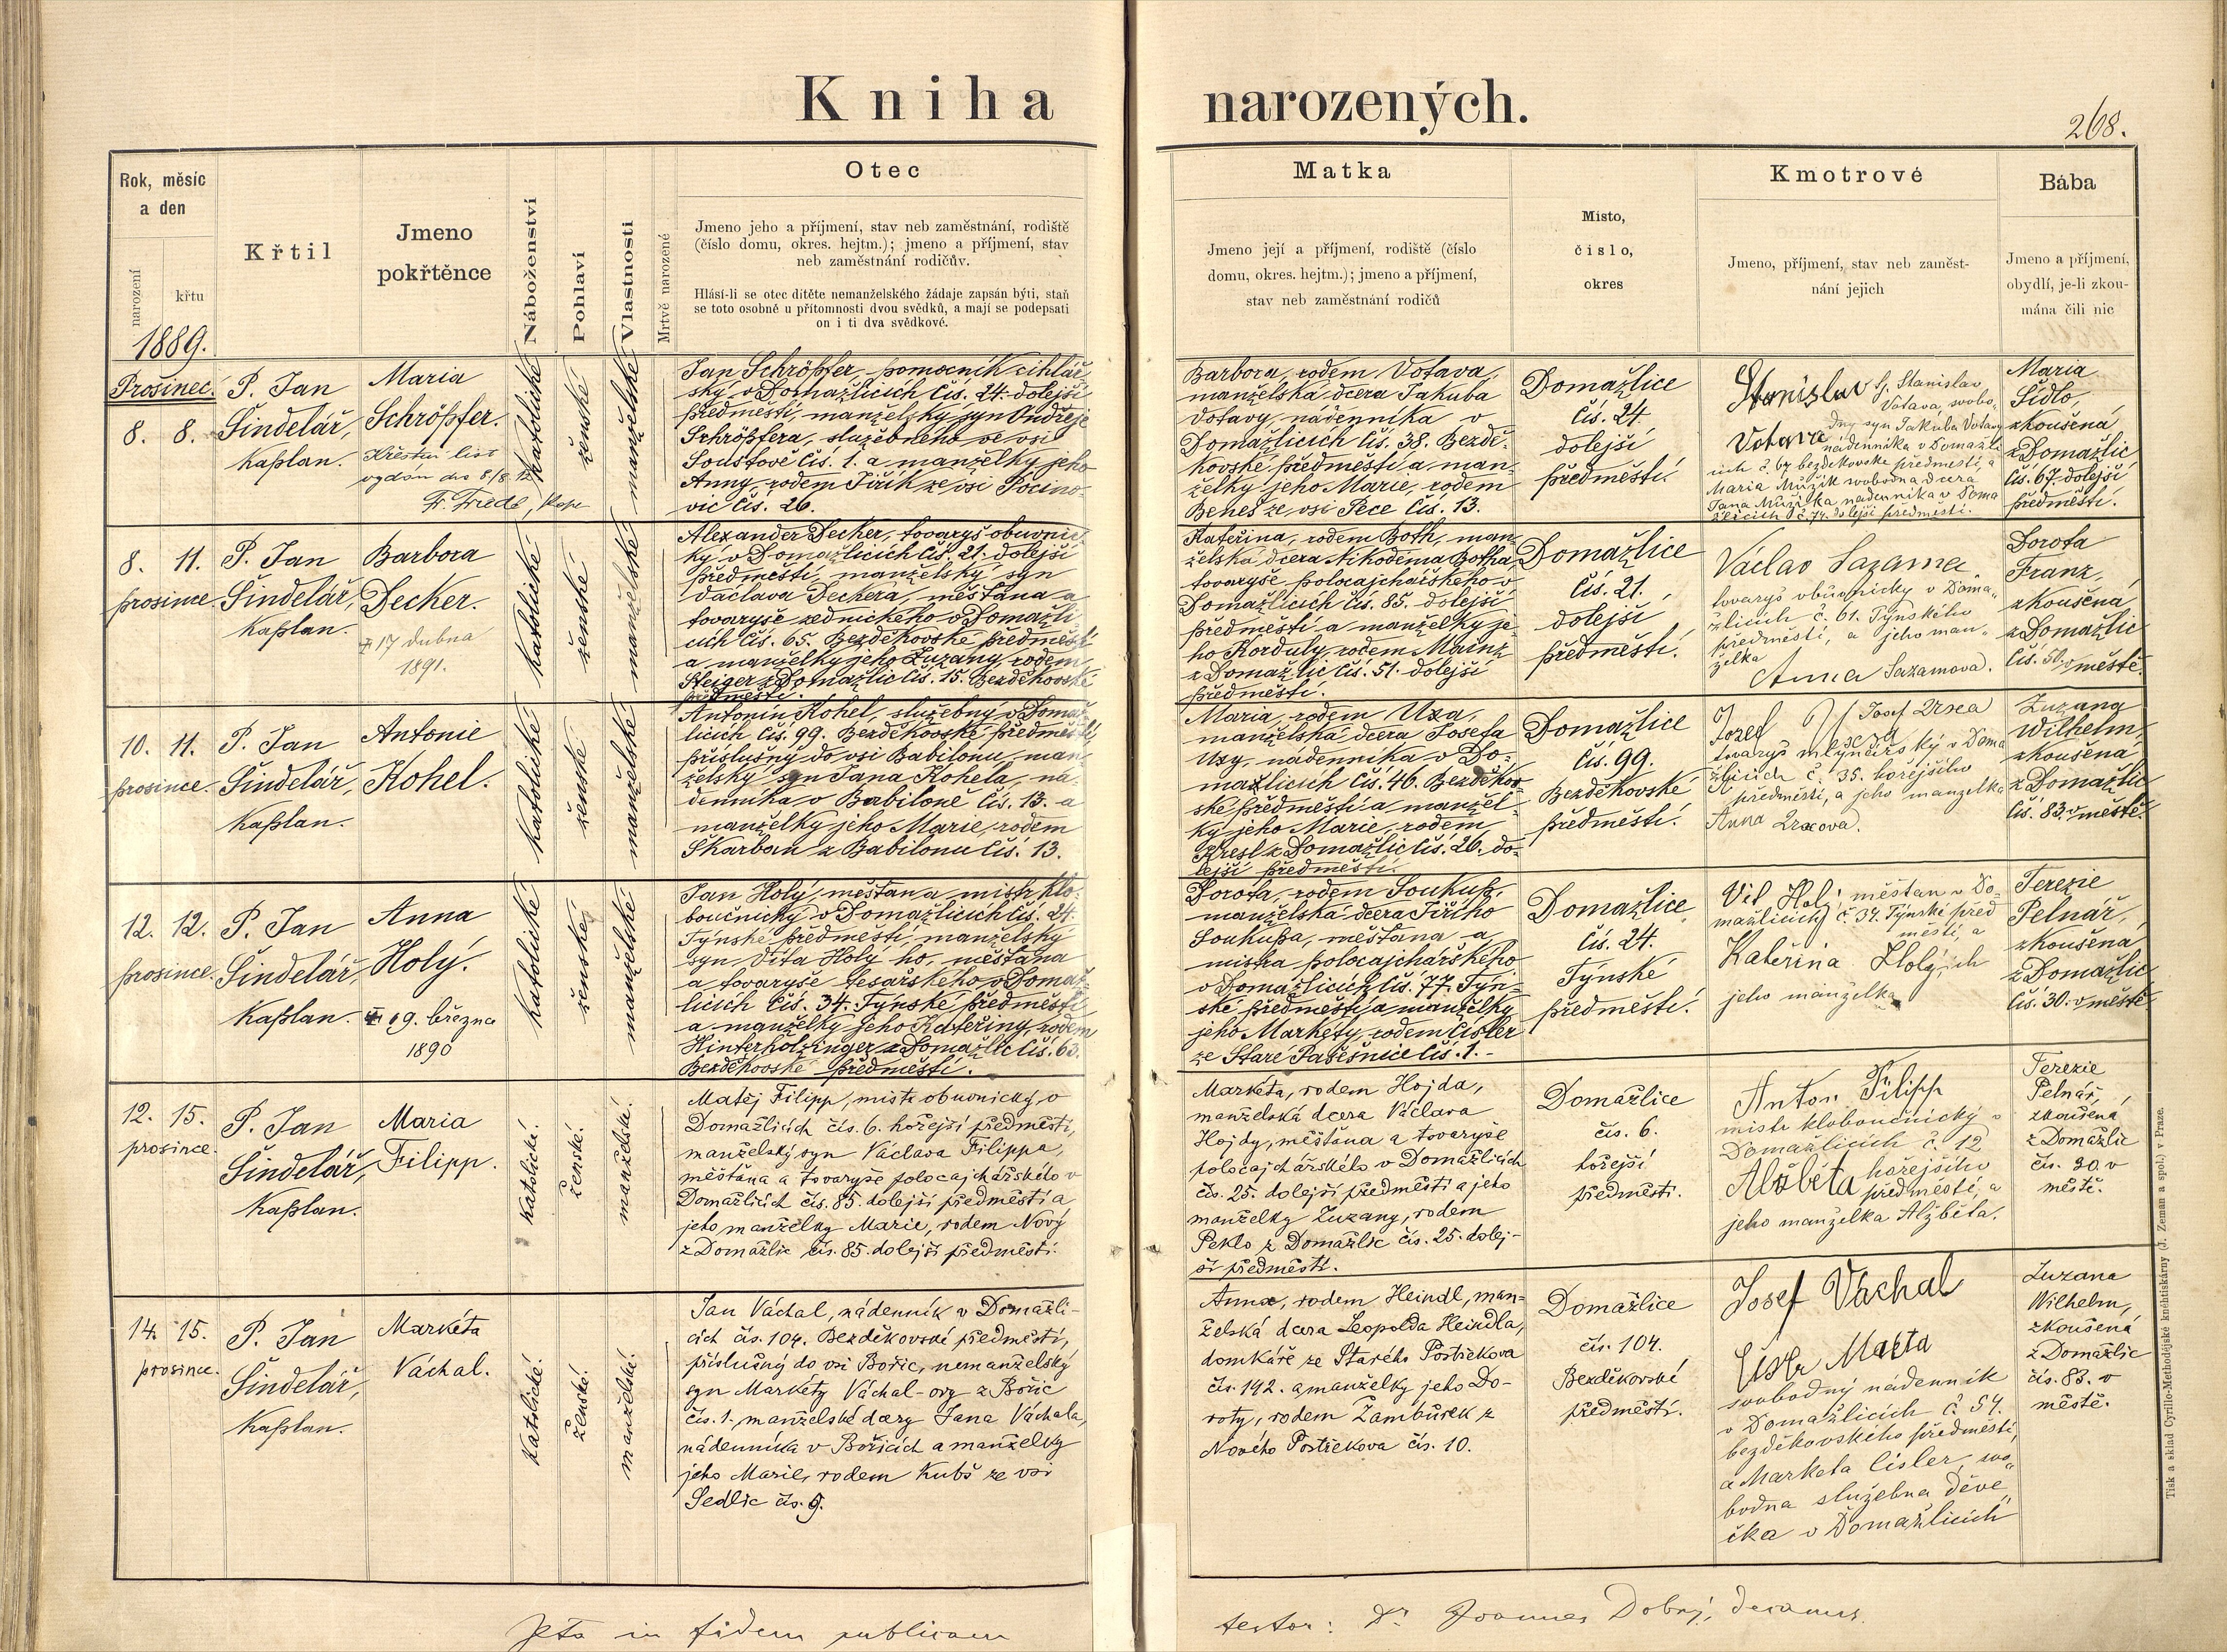 Kniha narozených.
268.
Rok, měsíc
a den
narození
křtu
1889.
Křtil
Jmeno
pokřtěnce
Náboženství
Pohlaví
Vlastnosti
Mrtvě narozené
Otec
Jmeno jeho a příjmení, stav neb zaměstnání, rodiště
(číslo domu, okres. hejtm.); jmeno a příjmení, stav
neb zaměstnání rodičův.
Hlásí-li se otec dítěte nemanželského žádaje zapsán býti, staň
se toto osobně u přítomnosti dvou svědků, a mají se podepsati
on i ti dva svědkové.
Matka
Jmeno její a příjmení, rodiště (číslo
domu, okres. hejtm.); jmeno a příjmení,
stav neb zaměstnání rodičů
Místo,
číslo,
okres
Kmotrové
Jmeno, příjmení, stav neb zaměst-
nání jejich
Bába
Jmeno a příjmení,
obydlí, je-li zkou-
mána čili nic
Prosinec.
8. 8.
P. Jan
Šindelář,
kaplan.
Maria
Schröpfer.
Křestní list
vydán dne 8/8 12
Fr. Friedl, kapl
katolické
ženské
manželské
Jan Schröpfer, pomocník cihlář
ský v Domažlicích čís. 24. dolejší
předměstí, manželský syn Ondřeje
Schröpfera, služebného ve vsi
Soustově čís. 1. a manželky jeho
Anny, rodem Jiřík ze vsi Pocino-
vic čís. 26.
Barbora, rodem Votava,
manželská dcera Jakuba
Votavy, nádenníka v
Domažlicích čís. 38. Bezdě-
kovské předměstí a man-
želky jeho Marie, rodem
Beneš ze vsi Pece čís. 13.
Domažlice
čís. 24.
dolejší
předměstí.
Stanislav Votava
Stanislav
Votava, svobo-
dný syn Jakuba Votavy
nádenníka v Domažli
cích č. 67 bezděkovské předměstí, a
Maria Mužík svobodna dcera
Jana Mužíka nadenníka v Doma
žlicích č. 74. dolejší předměstí.
Maria
Šidlo,
zkoušená
z Domažlic
čís. 67. dolejší
předměstí.
8. 11.
prosince.
P. Jan
Šindelář,
kaplan.
Barbora
Decker.
17 dubna
1891.
katolické
ženské
manželské
Alexander Decker, tovaryš obuvnic
ký v Domažlicích čís. 21. dolejší
předměstí, manželský syn
Václava Deckera, měšťana a
tovaryše zednického v Domažli-
cích čís. 65. Bezděkovské předměstí
a manželky jeho Zuzany, rodem
Steiger z Domažlic čís. 15. Bezděkovské
předměstí.
Kateřina, rodem Both, man-
želská dcera Nikodema Botha,
tovaryše polocajchářského v
Domažlicích čís. 85. dolejší
předměstí a manželky je-
ho Korduly, rodem Mainz
z Domažlic čís. 51. dolejší
předměstí.
Domažlice
čís. 21.
dolejší
předměstí.
Václav Sazama
tovaryš obuvnický v Doma-
žlicích č. 61. Týnského
předměstí, a jeho man-
želka
Anna Sazamová.
Dorota
Franz,
zkoušená
z Domažlic
čís. 50. v městě.
10. 11.
prosince.
P. Jan
Šindelář,
kaplan.
Antonie
Kohel.
katolické
ženské
manželské
Antonín Kohel, služebný v Domaž
licích čís. 99. Bezděkovské předměstí,
příslušný do vsi Babilonu, man-
želský syn Jana Kohela, ná-
denníka v Babiloně čís. 13. a
manželky jeho Marie, rodem
Škarban z Babilonu čís. 13.
Maria, rodem Uxa,
manželská dcera Josefa
Uxy, nádenníka v Do-
mažlicích čís. 46. Bezděkov
ské předměstí a manžel-
ky jeho Marie, rodem
Kresl z Domažlic čís. 26. do-
lejší předměstí.
Domažlice
čís. 99.
Bezděkovské
předměstí.
Jozef
tovaryš mlynářský v Doma
žlicích č. 35. hořejšího
předměstí, a jeho manželka
Anna
Zuzana
Wilhelm,
zkoušená
z Domažlic
čís. 83. v městě.
12. 12.
prosince.
P. Jan
Šindelář,
kaplan.
Anna
Holý.
19. března
1890
katolické
ženské
manželské
Jan Holý, měšťan a mistr klo-
boučnický v Domažlicích čís. 24.
Týnské předměstí, manželský
syn Víta Holý ho, měšťana
a tovaryše tesařského v Domaž
licích čís. 34. Týnské předměstí
a manželky jeho Kateřiny, rodem
Hinterholzinger z Domažlic čís. 63.
Bezděkovské předměstí.
Dorota, rodem Soukup,
manželská dcera Jiřího
Soukupa, měšťana a
mistra polocajchářského
v Domažlicích čís. 77. Týn-
ské předměstí a manželky
jeho Markéty, rodem Čísler
ze Staré Pasečnice čís. 1.
Domažlice
čís. 24.
Týnské
předměstí.
Vít Holý měšťan v Do
mažlicích č. 34. Týnské před
městí, a
Kateřina Holých
jeho manželka
Terezie
Pelnář,
zkoušená
z Domažlic
čís. 30. v městě
12. 15.
prosince.
P. Jan
Šindelář,
kaplan.
Maria
Filipp.
katolické.
ženské.
manželské.
Matěj Filipp, mistr obuvnický v
Domažlicích čís. 6. hořejší předměstí,
manželský syn Václava Filippa,
měšťana a tovaryše polocajchářského v
Domažlicích čís. 85. dolejší předměstí a
jeho manželky Marie, rodem Nový
z Domažlic čís. 85. dolejší předměstí.
Markéta, rodem Hojda,
manželská dcera Václava
Hojdy, měšťana a tovaryše
polocajchářského v Domažlicích
čís. 25. dolejší předměstí a jeho
manželky Zuzany, rodem
Peklo z Domažlic čís. 25. dolej-
ší předměstí.
Domažlice
čís. 6.
hořejší
předměstí.
Anton Filipp
mistr kloboučnický v
Domažlicích č. 12
Alžběta hořejšího
předměstí, a
jeho manželka Alžběta.
Terezie
Pelnář,
zkoušená
z Domažlic
čís. 30. v
městě.
14. 15.
prosince.
P. Jan
Šindelář,
kaplan.
Markéta
Váchal.
katolické.
ženské.
manželské.
Jan Váchal, nádenník v Domažli-
cích čís. 104. Bezděkovské předměstí,
příslušný do vsi Bořic, nemanželský
syn Markéty Váchal-ovy z Bořic
čís. 1. manželské dcery Jana Váchala,
nádenníka v Bořicích a manželky
jeho Marie, rodem Kubš ze vsi
Sedlic čís. 9.
Anna, rodem Heindl, man-
želská dcera Leopolda Heindla,
domkáře ze Starého Postřekova
čís. 142. a manželky jeho Do-
roty, rodem Zambůrek z
Nového Postřekova čís. 10.
Domažlice
čís. 104.
Bezděkovské
předměstí.
Josef Váchal
svobodný nádenník
v Domažlicích č. 54.
bezděkovského předměstí,
a Marketa Čísler, svo-
bodna služebna děve
čka v Domažlicích
Zuzana
Wilhelm,
zkoušená
z Domažlic
čís. 83. v
městě.
Ita in fidem publicam
testor: Dr. Joannes Dobrý, decanus.
Tisk a sklad Cyrillo-Methodějské knihtiskárny (J. Zeman a spol.) v Praze.